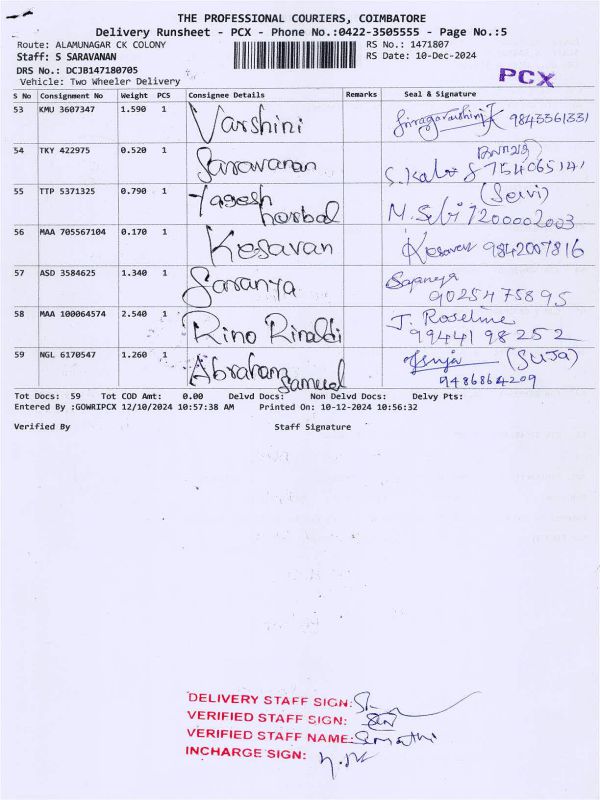 THE PROFESSIONAL COURIERS, COIMBATORE
Delivery Runsheet - PCX - Phone No.:0422-3505555 - Page No.:5
Route: ALAMUNAGAR CK COLONY RS No.: 1471807
Staff: S SARAVANAN RS Date: 10-Dec-2024
DRS No.: DCJB147180705
Vehicle: Two Wheeler Delivery
PCX
S No Consignment No Weight PCS Consignee Details Remarks Seal & Signature
53 KMU 3607347 1.590 1 Varshini 9843361331
54 TKY 422975 0.520 1 Saravanan
55 TTP 5371325 0.790 1 Yagesh herbal (Selvi)
M. Selvi 7200002003
56 MAA 705567104 0.170 1 Kesavan Kesavan 9842007816
57 ASD 3584625 1.340 1 Saranya
9025475895
58 MAA 100064574 2.540 1 Rino Rinaldi J. Roseline
9944198252
59 NGL 6170547 1.260 1 Abraham Samuel (SUJA)
9486864209
Tot Docs: 59 Tot COD Amt: 0.00 Delvd Docs: Non Delvd Docs: Delvy Pts:
Entered By :GOWRIPCX 12/10/2024 10:57:38 AM Printed On: 10-12-2024 10:56:32
Verified By Staff Signature
DELIVERY STAFF SIGN:
VERIFIED STAFF SIGN:
VERIFIED STAFF NAME:
INCHARGE SIGN: